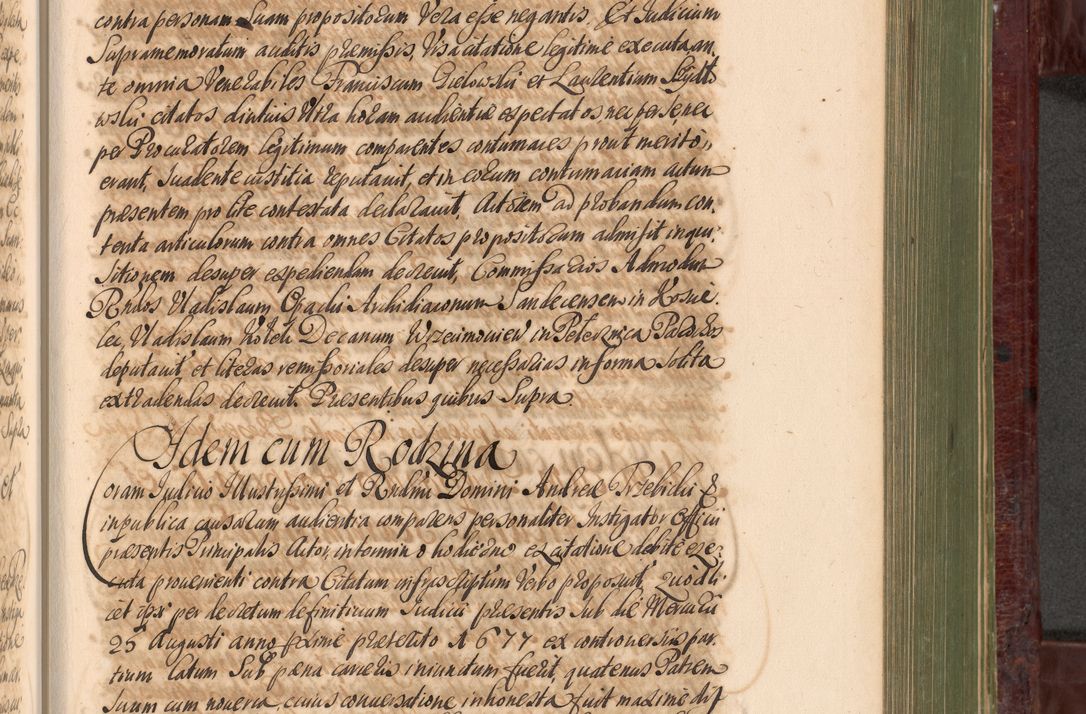 contra personam Suam propositorum Vera esse negantis. Et Iudicium
Supramemoratum auditis præmissis, Visa citatione legitime executa an,
te omnia Venerabiles Franciscum Gielowski et Laurentium
wski citatos diutius Ultra horam audientiæ expectatos nec per se nec
per Procuratorem legitimum comparentes contumaces prout merito
erant, Suadente iustitia reputauit, et in eorum contumaciam actum
præsentem pro lite contestata declarauit, Actorem ad probandum con,
tenta articulorum contra omnes Citatos propositorum admisit inqui,
Sitionem desuper expediendam decreuit, Commissarios Admodum
Rndos Vladislaum Opacki Archidiaconum Sandecensem in Kosie,
lec, Vladislaum Decanum in Pelcznica
deputauit et literas remissoriales desuper necessarias in forma Solita
extradendas decreuit. Præsentibus quibus Supra.
Idem cum Rodzina
Coram Iudicio Illustrissimi et Rndmi Domini Andreæ Trzebicki E
in publica causarum audientia comparens personaliter Instigator Officii
præsentis Principalis Actor, in termino hodierno ex Citatione debite exe,
cuta prouenienti contra Citatum infrascriptum Verbo proposuit, Quod li,
cet ipse per decretum definitiuum Iudicii præsentis sub die Mercurii
25 Augusti anno proxime preterito 1677 ex controuersiis par,
tium latum Sub pæna carceris iniunctum fuerit, quatenus Patrem
Suum cum nouerca, cuius conuersatione inhonesta fuit maxime dif